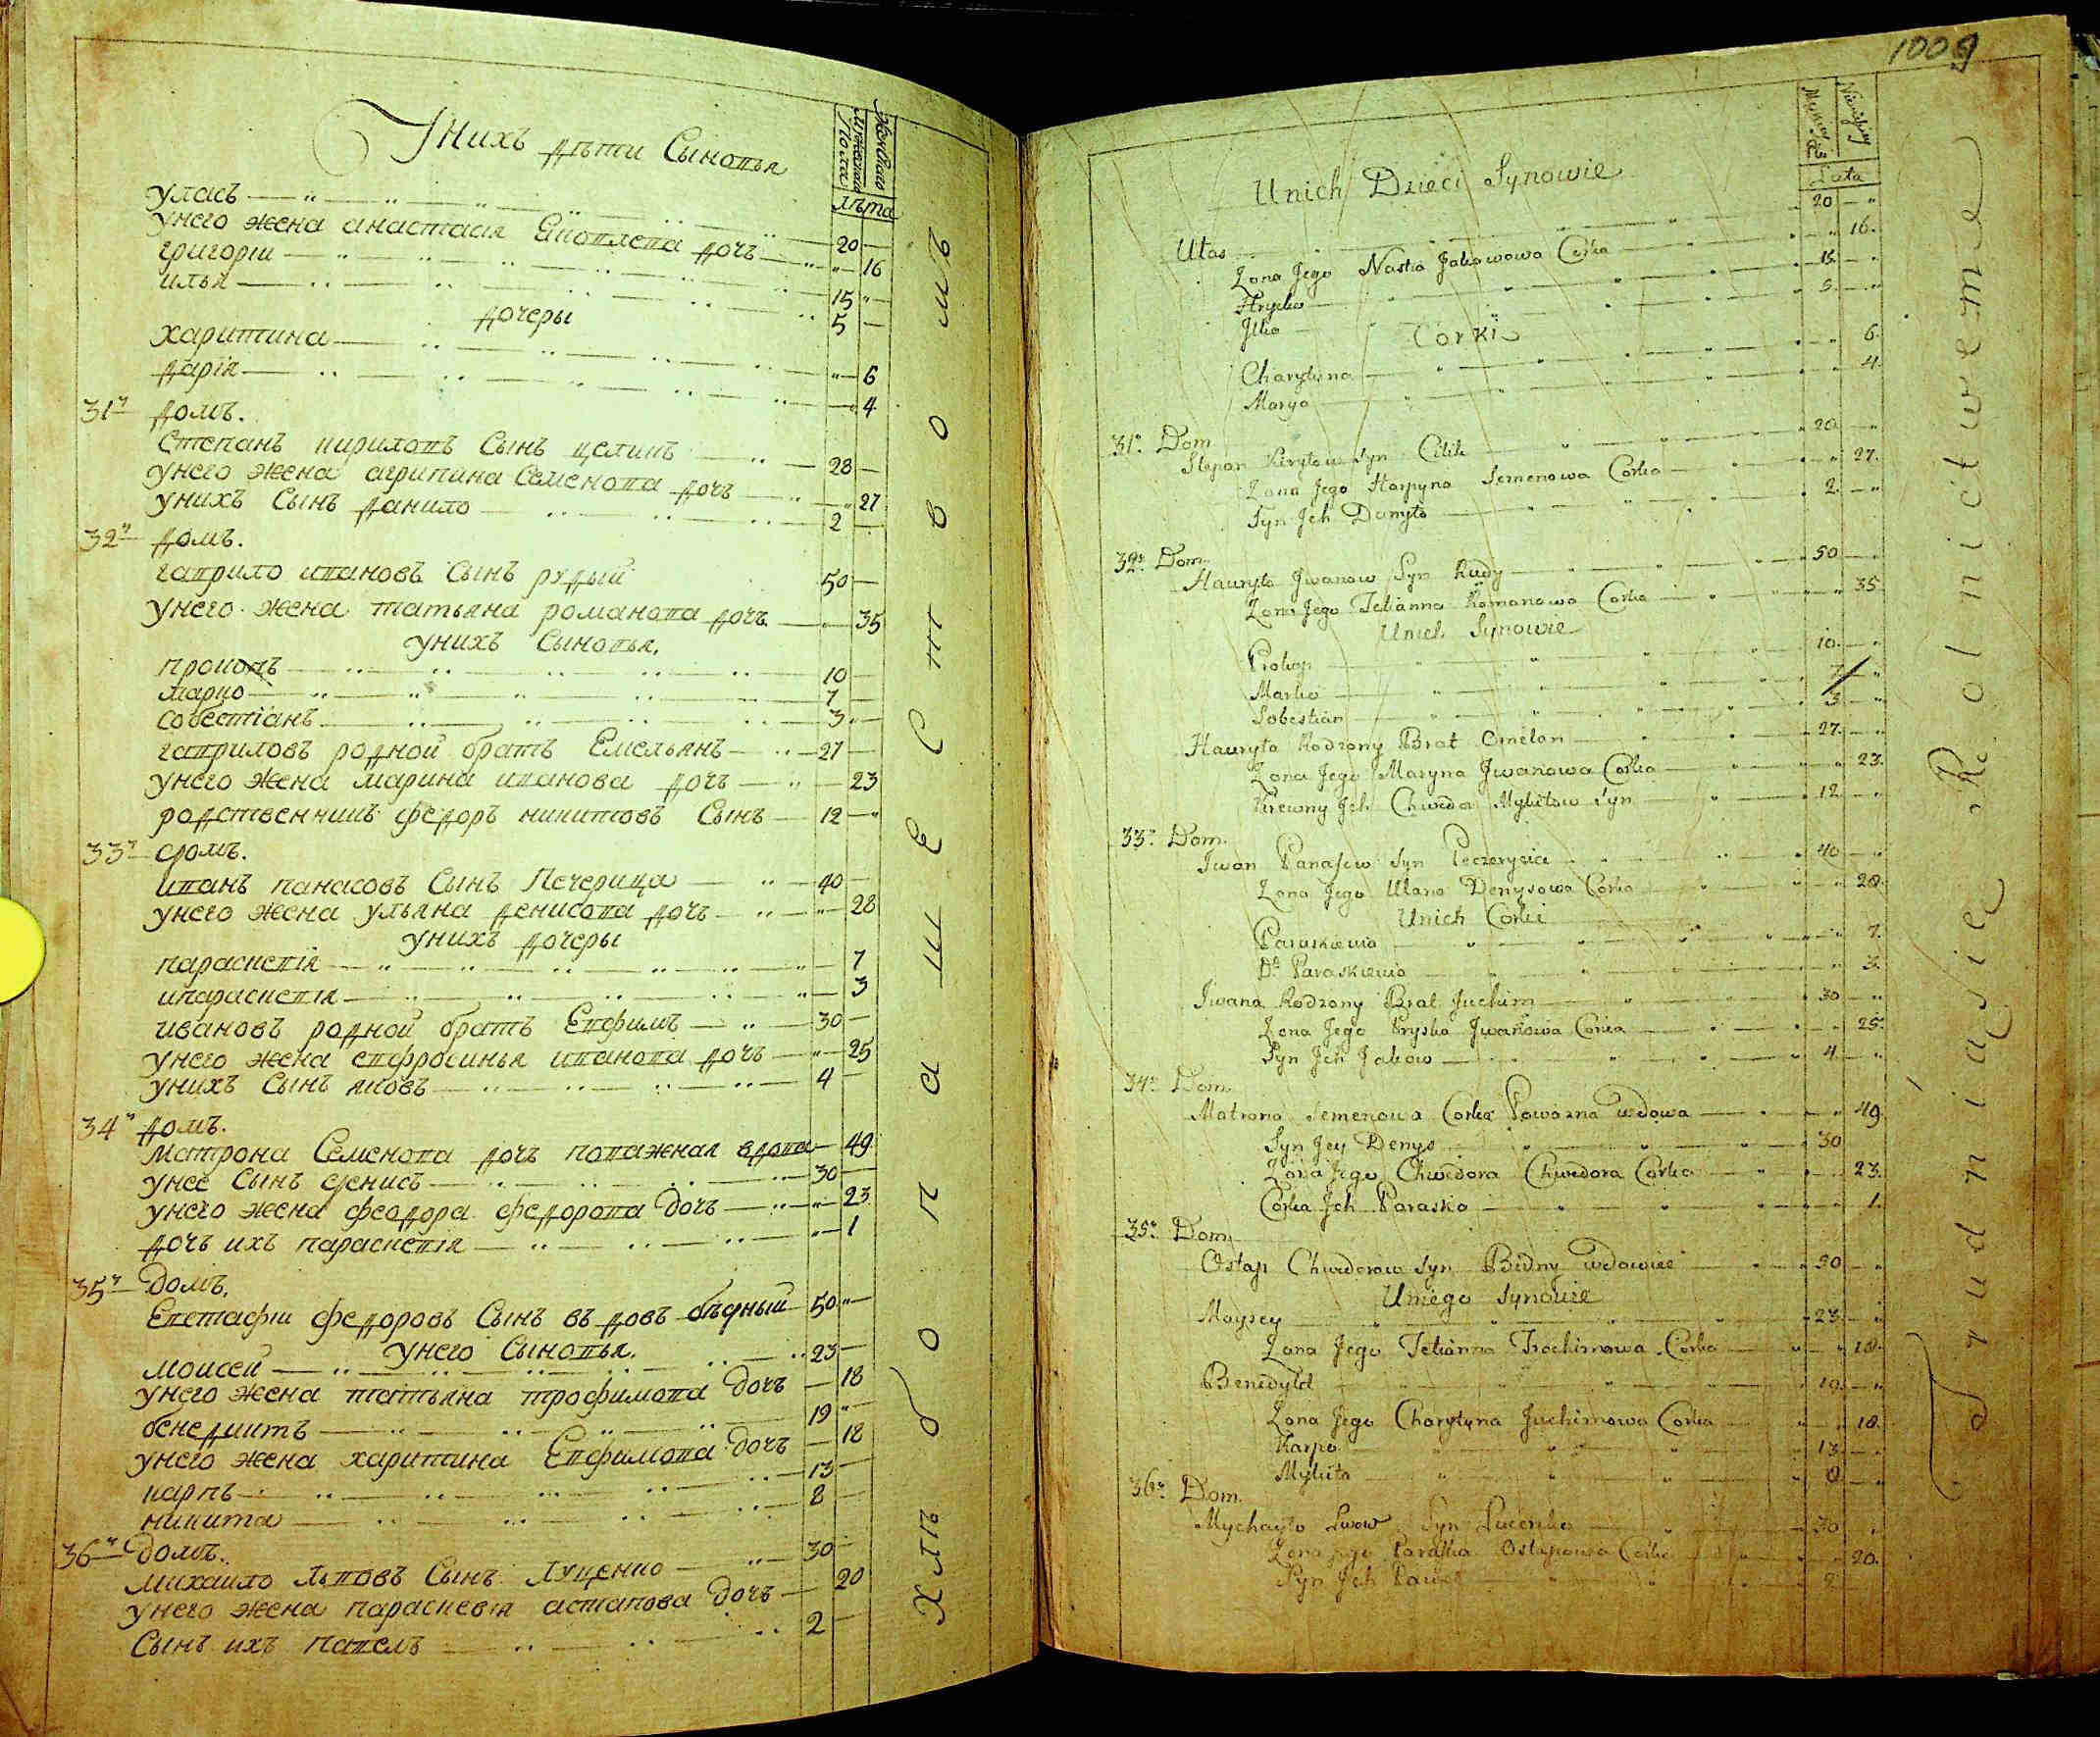 Унихъ дѣти Сыновья
Женскаго
Мужеска
Пола
лѣта
уласъ 20
унего жена анастасія Яковлева дочь 16
григоріи 15
илья 5
дочеры
харитина 6
дарія 4
31й домъ.
Степанъ кириловъ Сынъ целикъ 28
унего жена агрипина Семенова дочь 27
унихъ Сынъ данило 2
32й домъ.
гаврило ивановъ Сынъ рудый 50
унего жена татьяна романова дочь 35
унихъ Сыновья.
прокопъ 10
марко 7
собестіанъ 3
гавриловъ родной братъ Емельянъ 27
унего жена марина иванова дочь 23
родственникъ федоръ никитовъ Сынъ 12
33й домъ.
иванъ панасовъ Сынъ Печерица 40
унего жена ульяна денисова дочь 28
унихъ дочеры
параскевія 7
ипараскевія 3
ивановъ родной братъ Евфимъ 30
унего жена евфросинья иванова дочь 25
унихъ Сынъ яковъ 4
34й домъ.
Матрона Семенова дочь поважная вдова 49
унее Сынъ денисъ 30
унего жена феодора федорова дочь 23
дочь ихъ параскевія 1
35й домъ.
Евстафіи федоровъ Сынъ въ довъ бѣдный 50
унего Сыновья.
моисей 23
унего жена татьяна трофимова дочь 18
бенедиктъ 19
унего жена харитина Евфимова дочь 18
карпъ 13
никита 8
36й домъ.
михаило Львовъ Сынъ Луценко 30
унего жена параскевія астапова дочь 20
Сынъ ихъ павелъ 2
Хлѣбопашествомъ
1009
Unich Dzieci Synowie
Lata
Ułas 20
Zona Jego Nastia Jakowowa Corka 16.
Hryćko 15.
Jlko 5.
Corki
Charytyna 6.
Marya 4.
31o Dom
Stepan Kiryłow Syn Cilik
Zona Jego Harpyna Semenowa Corka 27.
Syn Jch Danyło 2.
32o Dom.
Hauryło Jwanow Syn Rudy 50
Zona Jego Tetianna Romanowa Corka 35
Unich Synowie
Prokop 10.
Marko 7
Sobestian 3
Hauryła Rodzony Brat Omelan 27.
Zona Jego Maryna Jwanowa Corka 23.
Krewny Jch Chweda Mykitow Syn 12
33o Dom.
Jwan Panasow Syn Peczeryca 40
Zona Jego Ulana Denysowa Corka 28.
Unich Corki
Paraskiewia 7.
Da Paraskiewia 3.
Jwana Rodzony Brat Juchim 30
Zona Jego Pryska Jwanowa Corka 25.
Syn Jch Jakow 4
34o Dom.
Matrona Semenowa Corka Powazna wdowa 49.
Syn Jey Denys 30
Zona Jego Chwedora Chwedora Corka 23.
Corka Jch Paraska 1.
35o Dom.
Ostap Chwedorow Syn Bidny wdowiec 50
Uniego Synowie
Moysey 23.
Zona Jego Tetianna Trochimowa Corka 18.
Benedykt 19.
Zona Jego Charytyna Juchimowa Corka 18.
Karpo 13.
Mykita 8
36o Dom.
Mychayło Lwow Syn Lucenko 30
Zona Jego Paraska Ostapowa Corka 20.
Syn Jch Paweł 2
Trudniąsie Rolnictweme